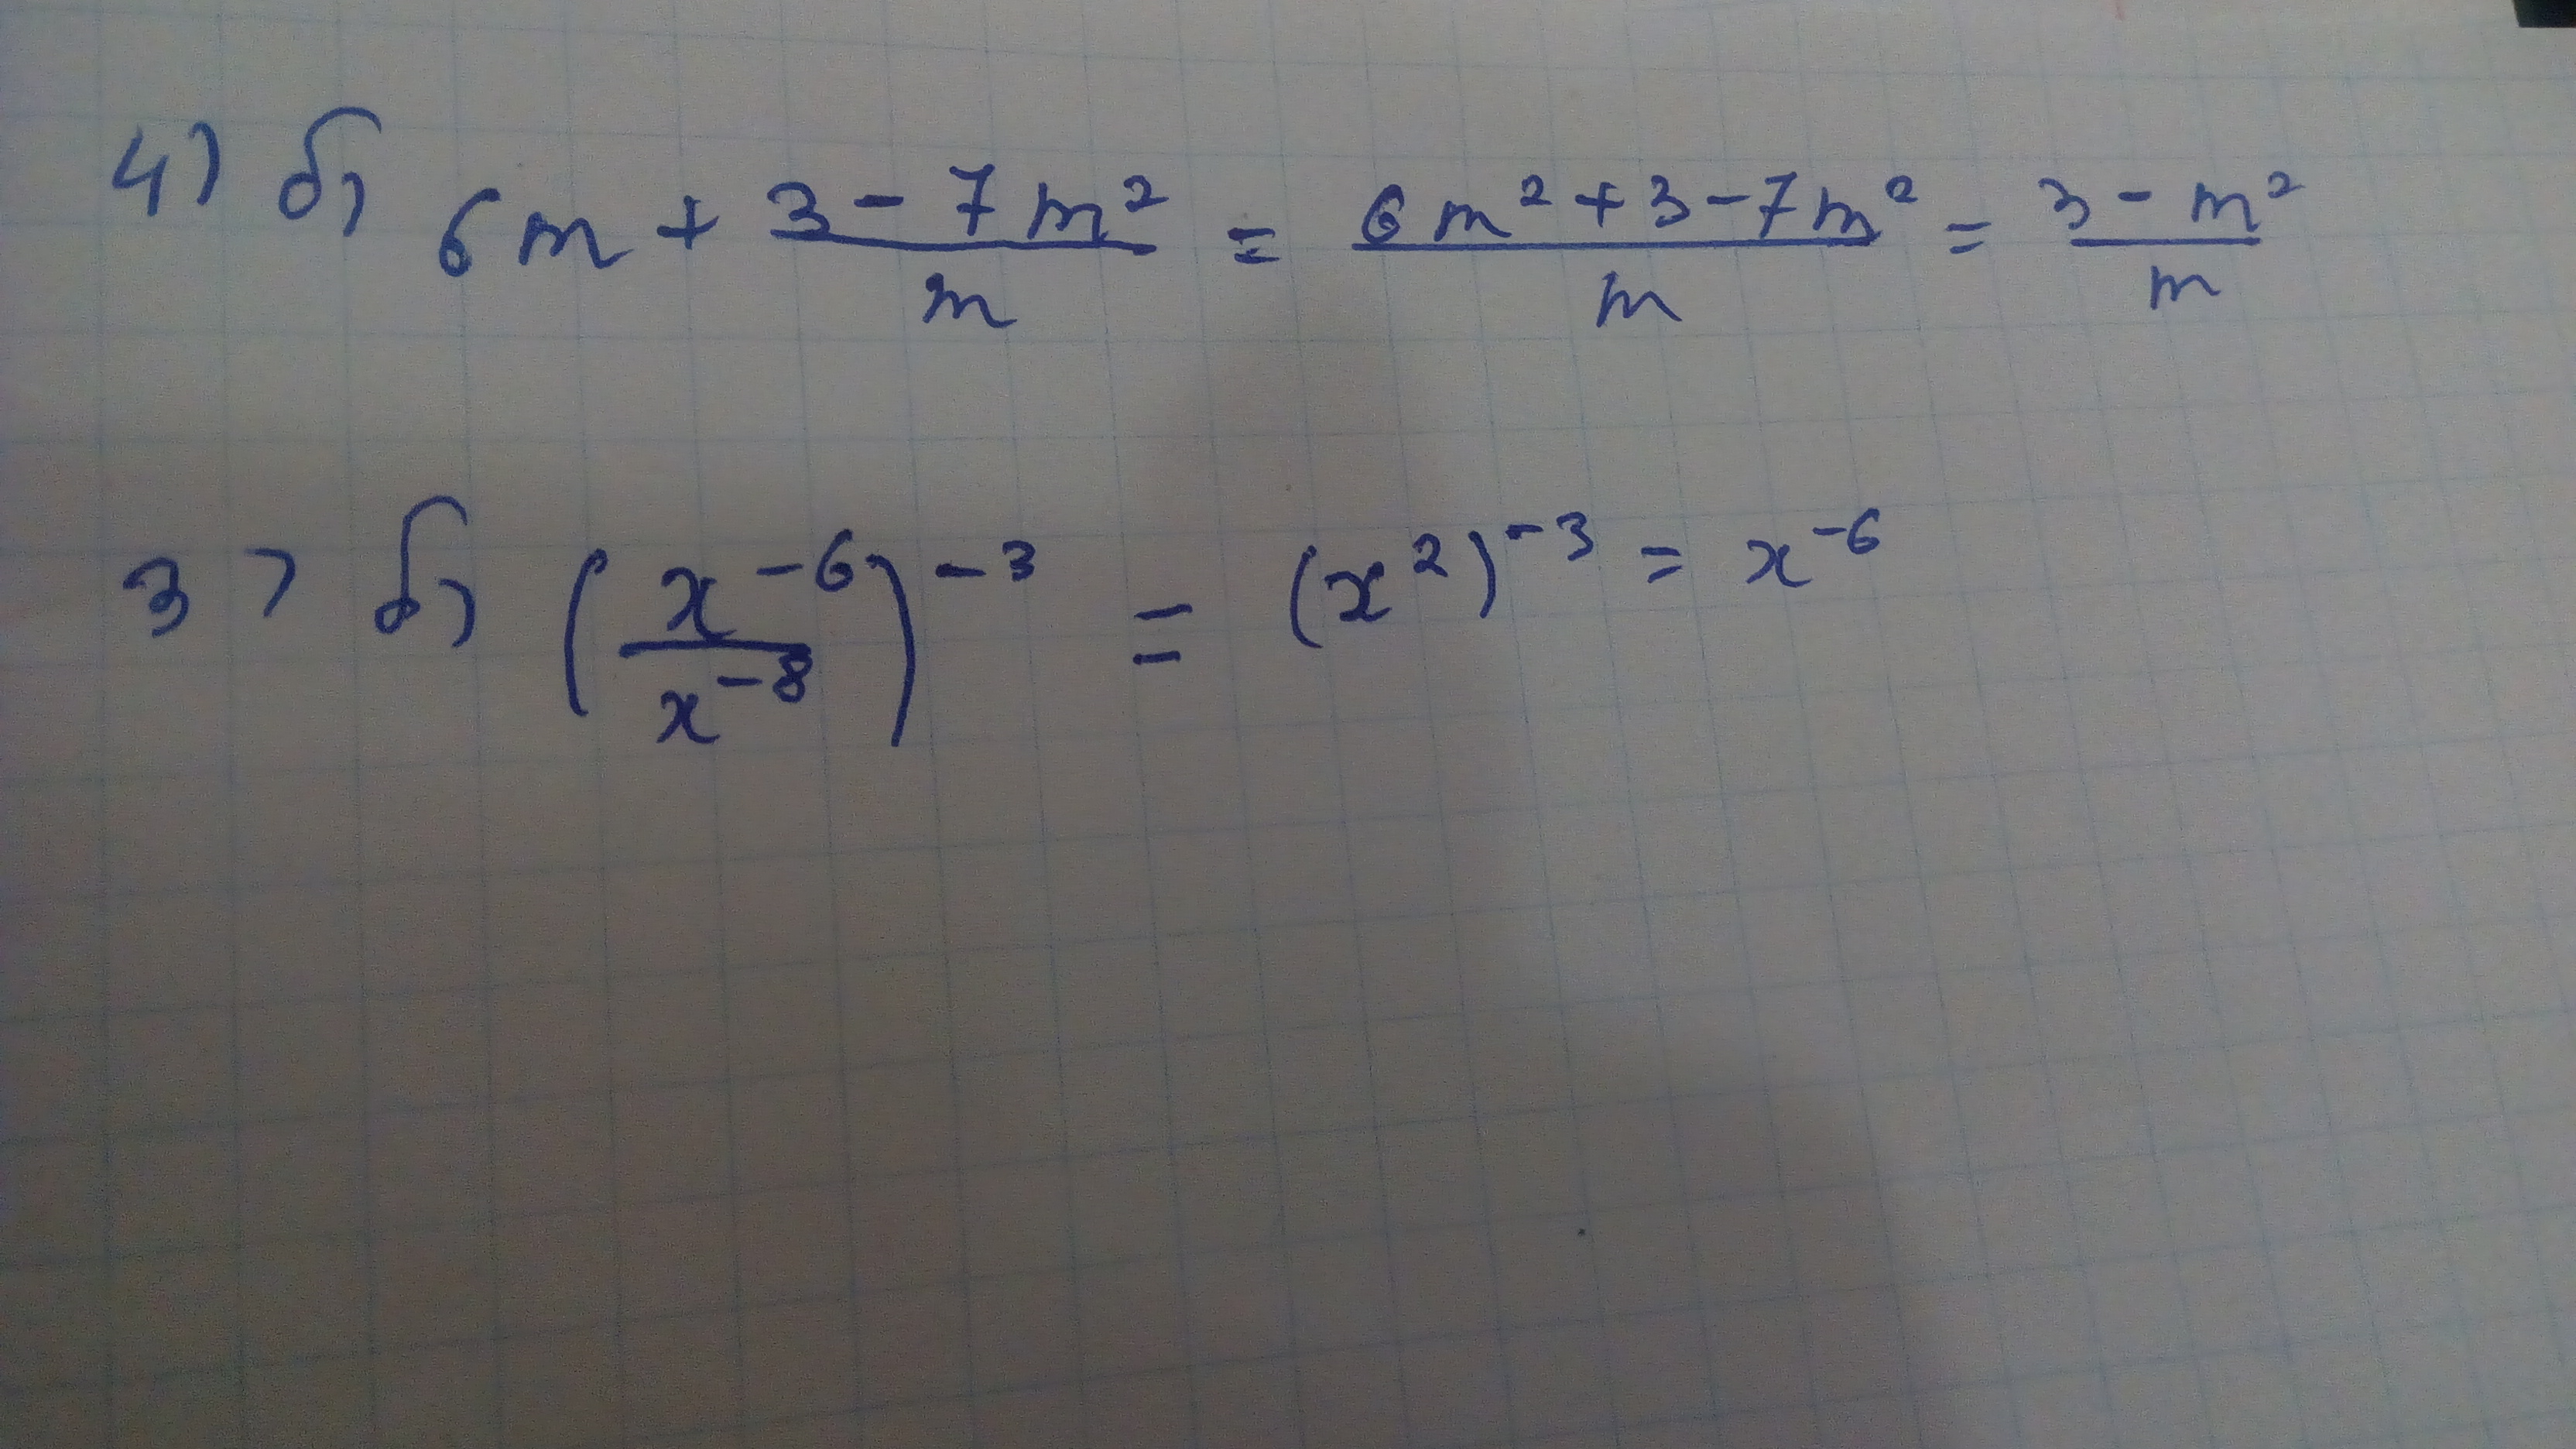 4) б) 6m + \frac{3 - 7m^2}{m} = \frac{6m^2 + 3 - 7m^2}{m} = \frac{3 - m^2}{m}
3) б) \left(\frac{x^{-6}}{x^{-8}}\right)^{-3} = (x^2)^{-3} = x^{-6}